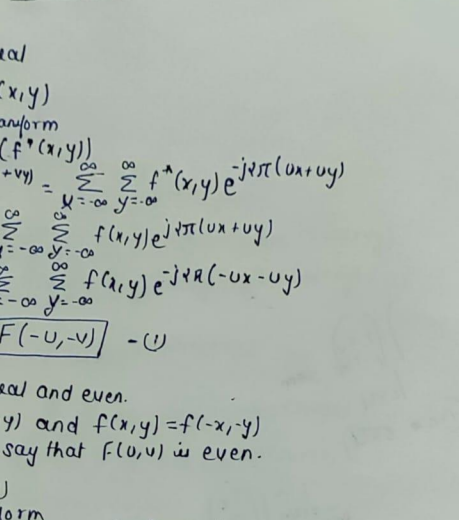 eal
(x,y)
ansform
(f*(x,y))
+ vy) = ∞Σx=-∞ ∞Σy=-∞ f*(x,y)e^-j2π(ux+vy)
∞Σx=-∞ ∞Σy=-∞ f(x,y)e^j2π(ux+vy)
∞Σx=-∞ ∞Σy=-∞ f(x,y)e^-j2π(-ux-vy)
F(-u,-v) -(1)
eal and even.
y) and f(x,y)=f(-x,-y)
say that F(u,v) is even.
)
form